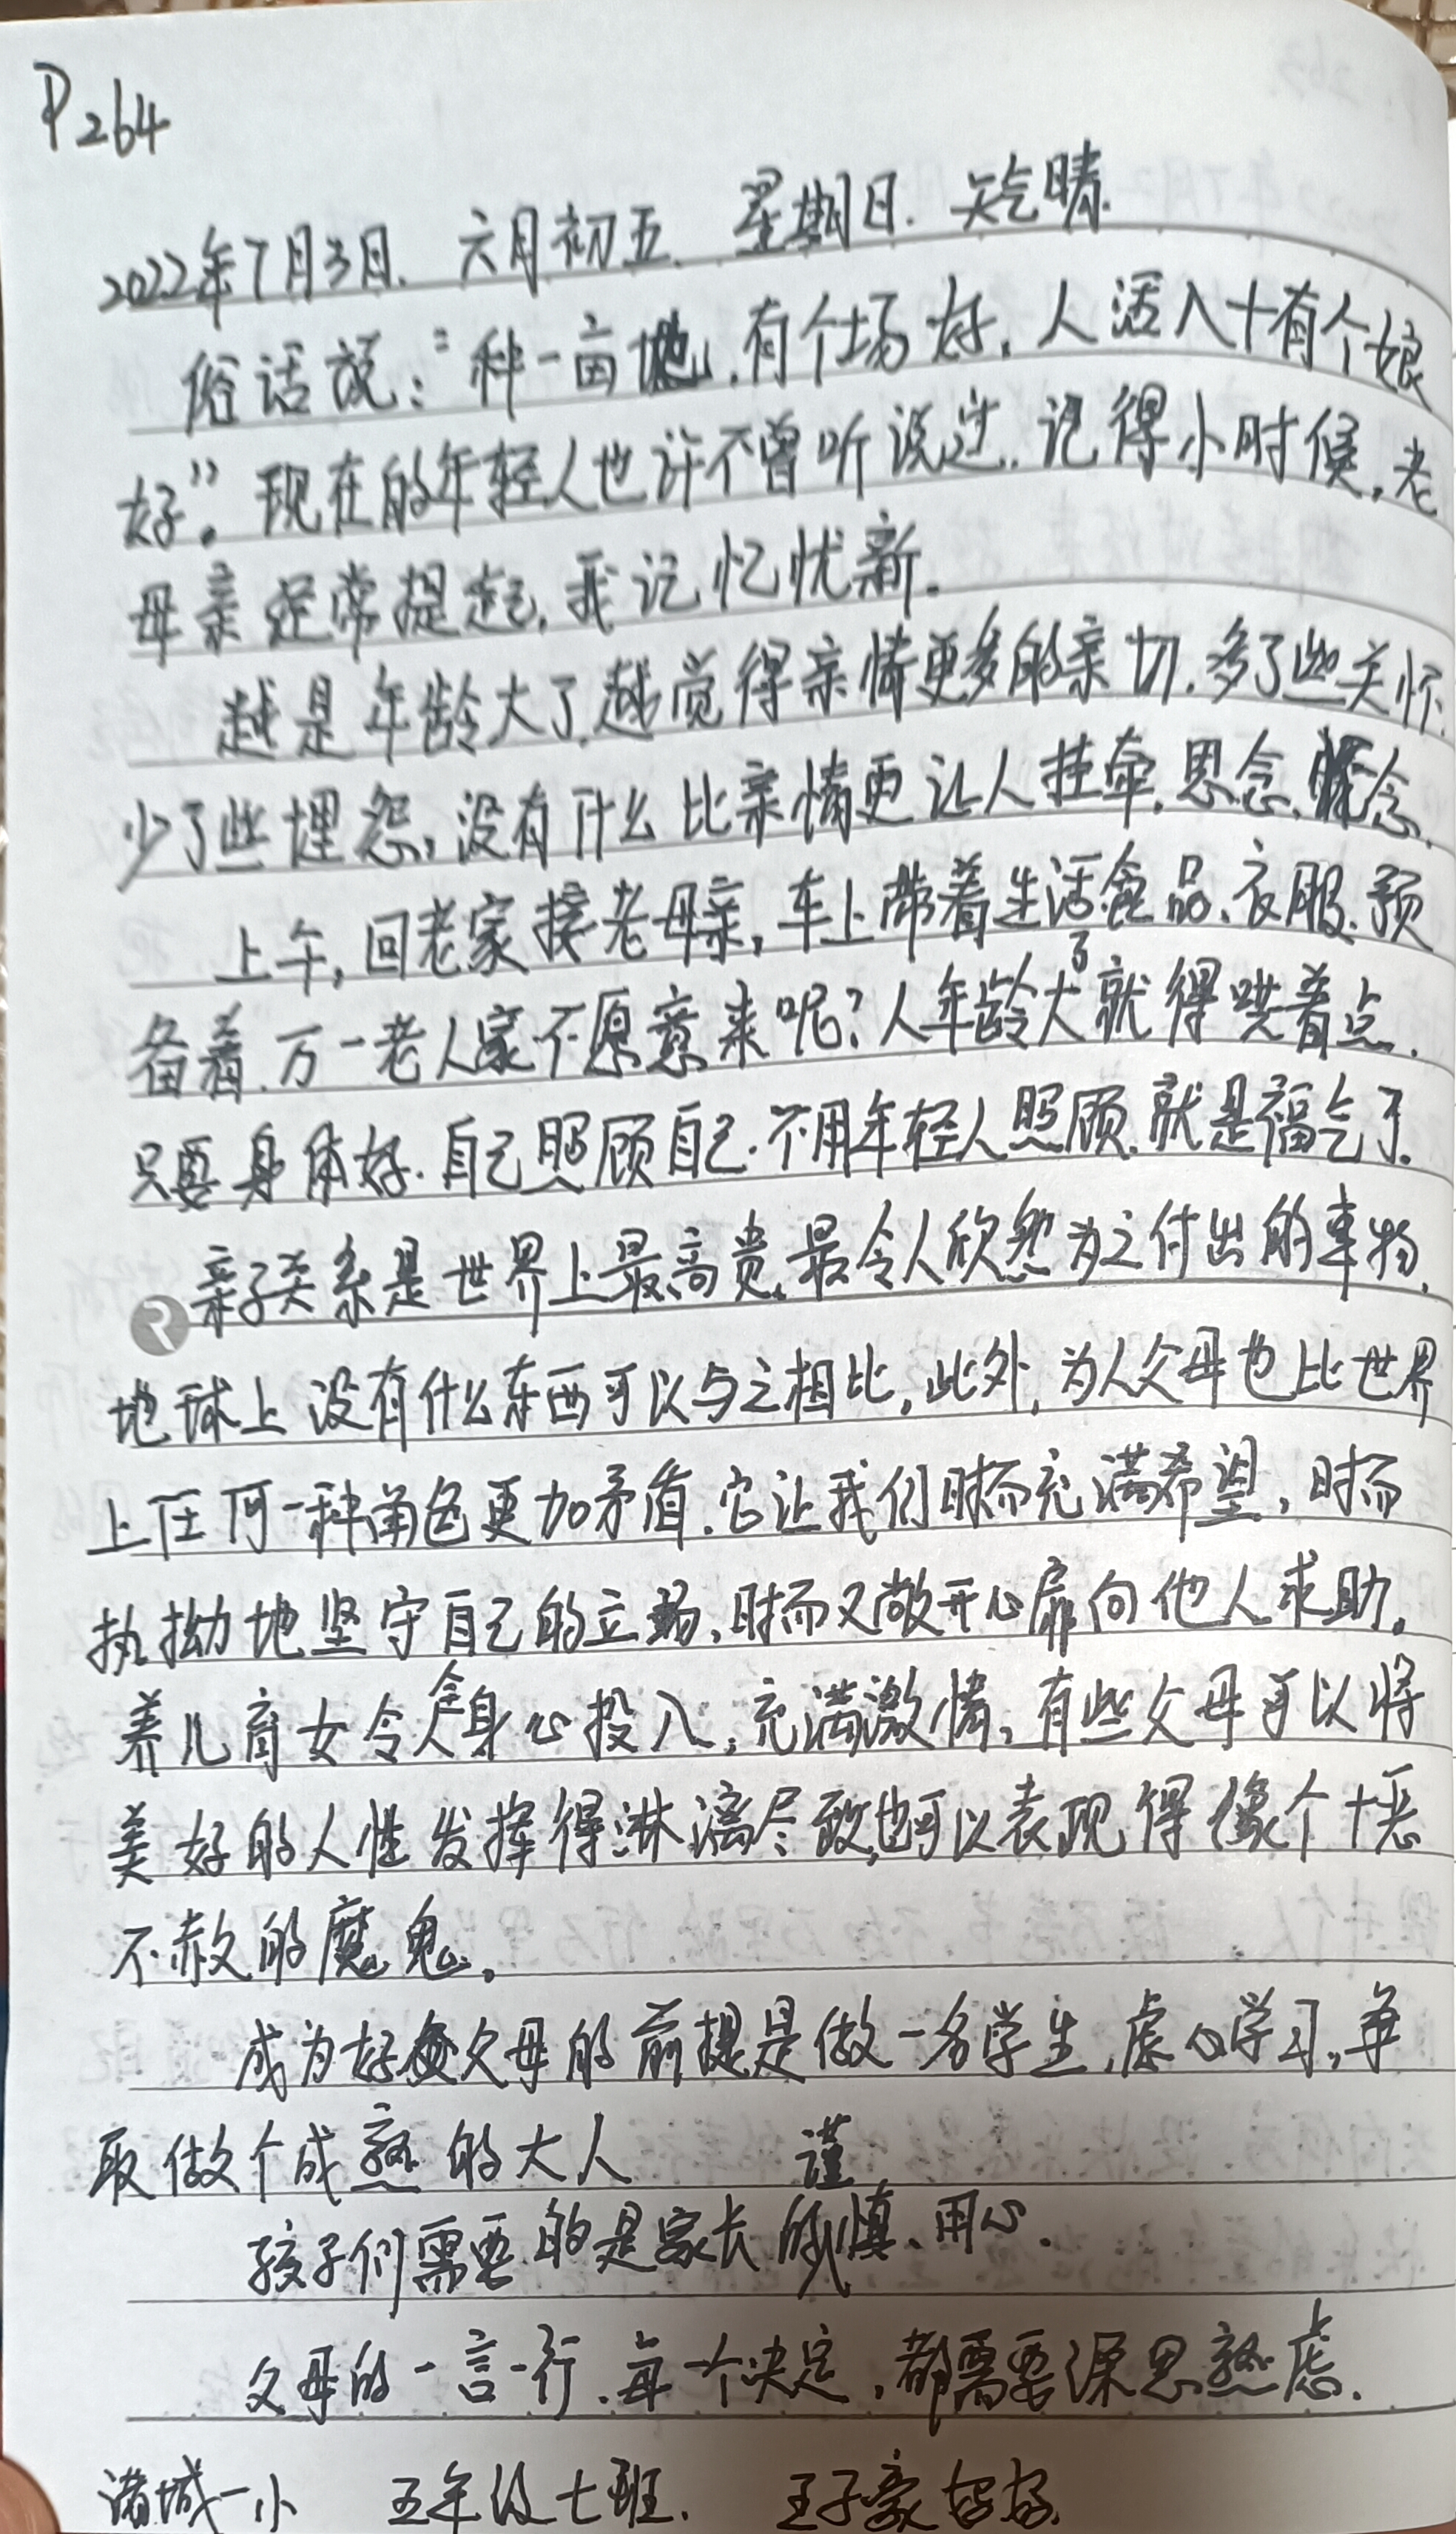 P264
2022年7月3日. 六月初五. 星期日. 天气晴.
俗话说：“种一亩地，有个场好，人活八十有个娘
好”。现在的年轻人也许不曾听说过.记得小时候，老
母亲经常提起，我记忆忧新.
越是年龄大了.越觉得亲情更多的亲切.多了些关怀.
少了些埋怨，没有什么比亲情更让人挂牵，思念、怀念.
上午，回老家接老母亲，车上带着生活食品、衣服.预
备着.万一老人家不愿意来呢?人年龄大了就得哄着点.
只要身体好.自己照顾自己.不用年轻人照顾.就是福气了.
亲子关系是世界上最高贵、最令人欣然为之付出的事物，
地球上没有什么东西可以与之相比，此外，为人父母也比世界
上任何一种角色更加矛盾.它让我们时而充满希望，时而
执拗地坚守自己的立场，时而又敞开心扉向他人求助。
养儿育女令人全身心投入，充满激情，有些父母可以将
美好的人性发挥得淋漓尽致,也可以表现得像个十恶
不赦的魔鬼。
成为好父母的前提是做一名学生，虚心学习，争
取做个成熟的大人
孩子们需要的是家长的谨慎、用心.
父母的一言一行.每一个决定，都需要深思熟虑.
诸城一小 五年级七班. 王子豪好好.